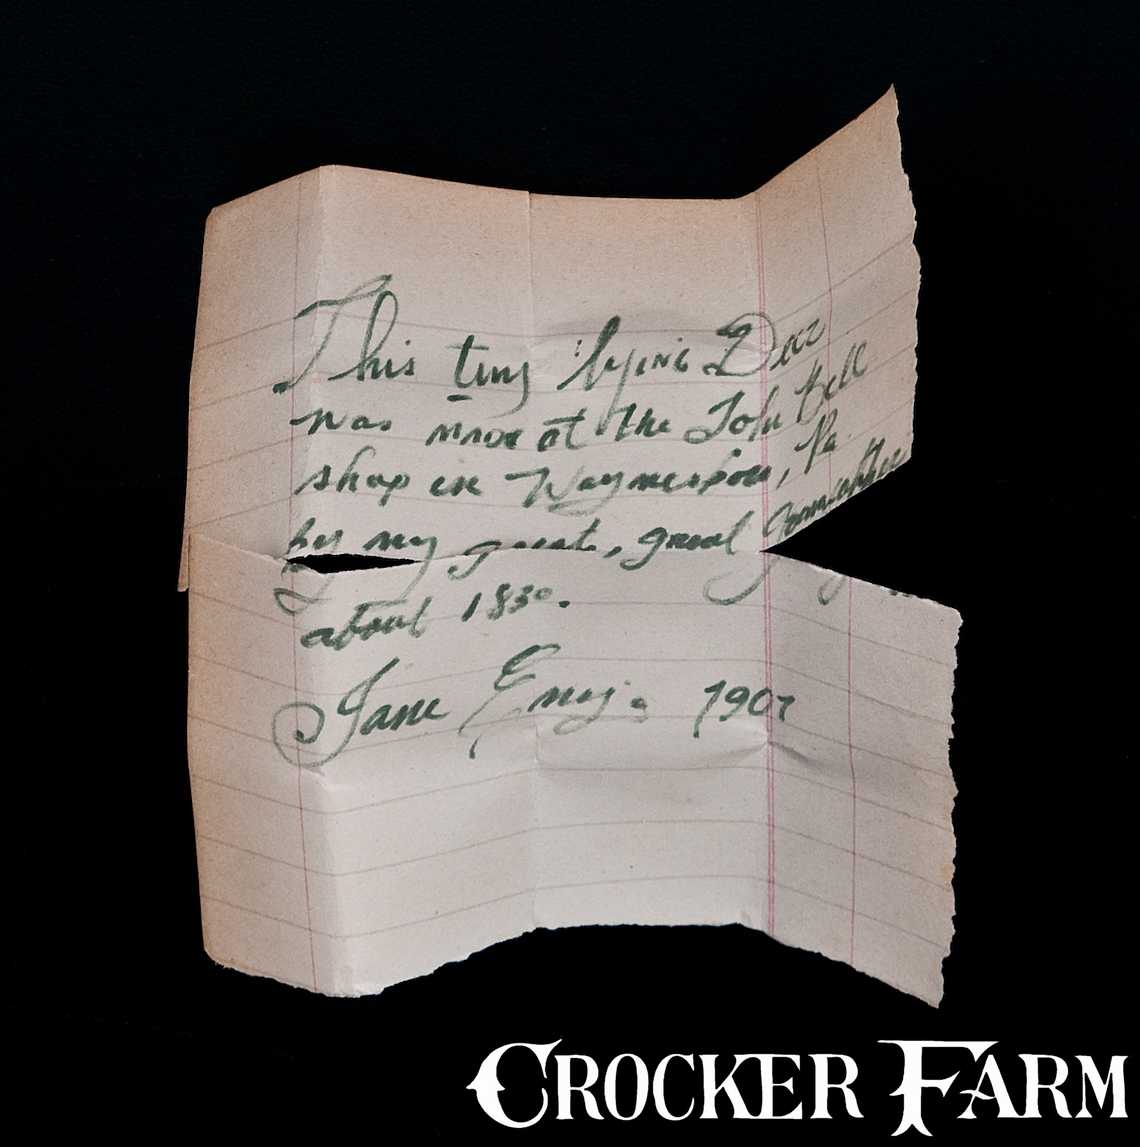 This tiny lying Deer
was made at the John Bell
shop in Waynesboro, Pa.
by my great, great Grandfather
about 1830.
Jane 1907
CROCKER FARM